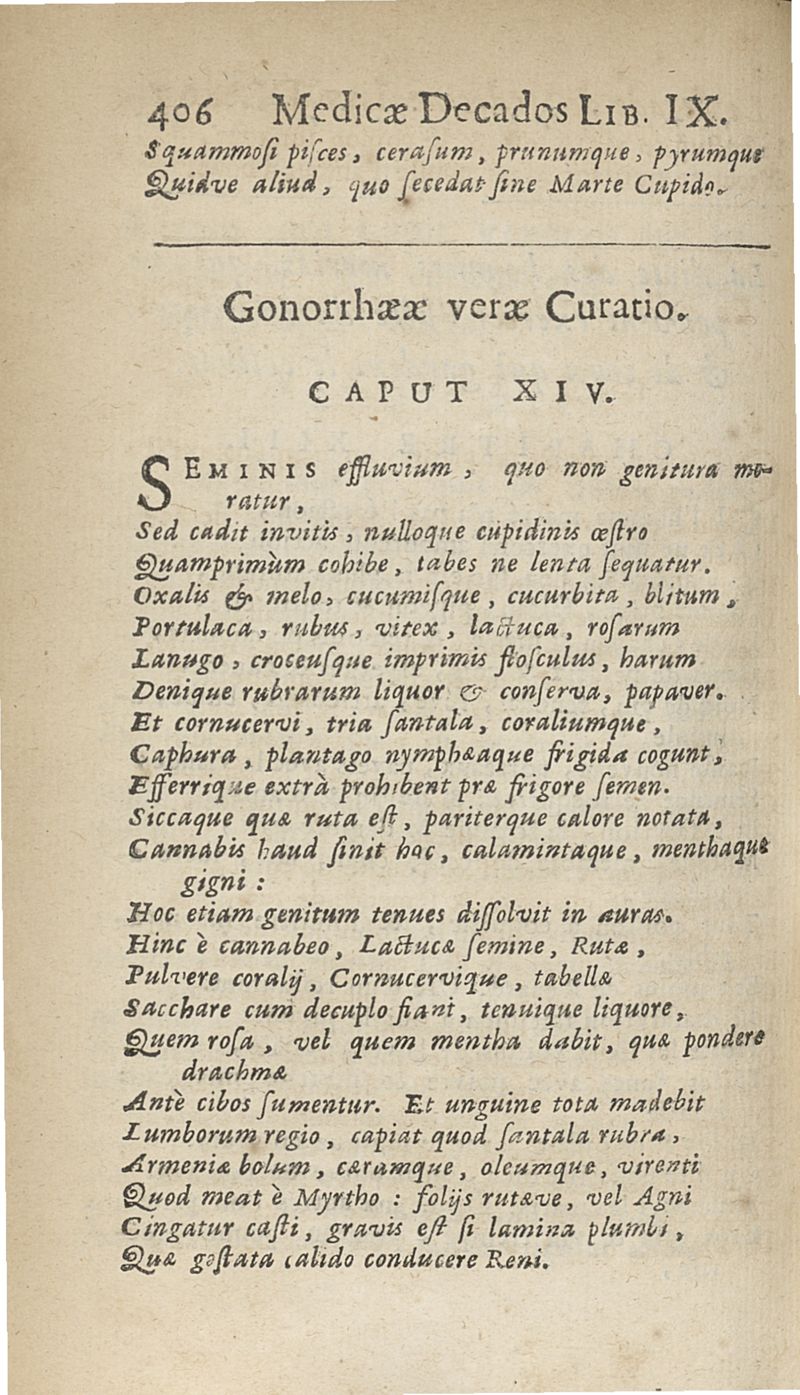 406 Medicæ Decados LIB. IX.
Squammosi pisces, cerasum, prunumque, pyrumque
Quidve aliud, quo secedat sine Marte Cupido.
Gonorrhææ veræ Curatio.
CAPUT XIV.
SEMINIS effluvium, quo non genitura mo-
ratur,
Sed cadit invitis, nulloque cupidinis œstro
Quamprimùm cohibe, tabes ne lenta sequatur.
Oxalis & melo, cucumisque, cucurbita, blitum,
Portulaca, rubus, vitex, lactuca, rosarum
Lanugo, croceusque imprimis flosculus, harum
Denique rubrarum liquor & conserva, papaver.
Et cornucervi, tria santala, coraliumque,
Caphura, plantago nymphæaque frigida cogunt,
Efferrique extrà prohibent præ frigore semen.
Siccaque quæ ruta est, pariterque calore notata,
Cannabis haud sinit hoc, calamintaque, menthaque
gigni:
Hoc etiam genitum tenues dissolvit in auras.
Hinc è cannabeo, Lactucæ semine, Rutæ,
Pulvere coralij, Cornucervique, tabellæ
Sacchare cum decuplo fiant, tenuique liquore,
Quem rosa, vel quem mentha dabit, quæ pondere
drachmæ
Antè cibos sumentur. Et unguine tota madebit
Lumborum regio, capiat quod santala rubra,
Armeniæ bolum, cæramque, oleumque, virenti
Quod meat è Myrtho: folijs rutæve, vel Agni
Cingatur casti, gravis est si lamina plumbi,
Quæ gestata calido conducere Reni.